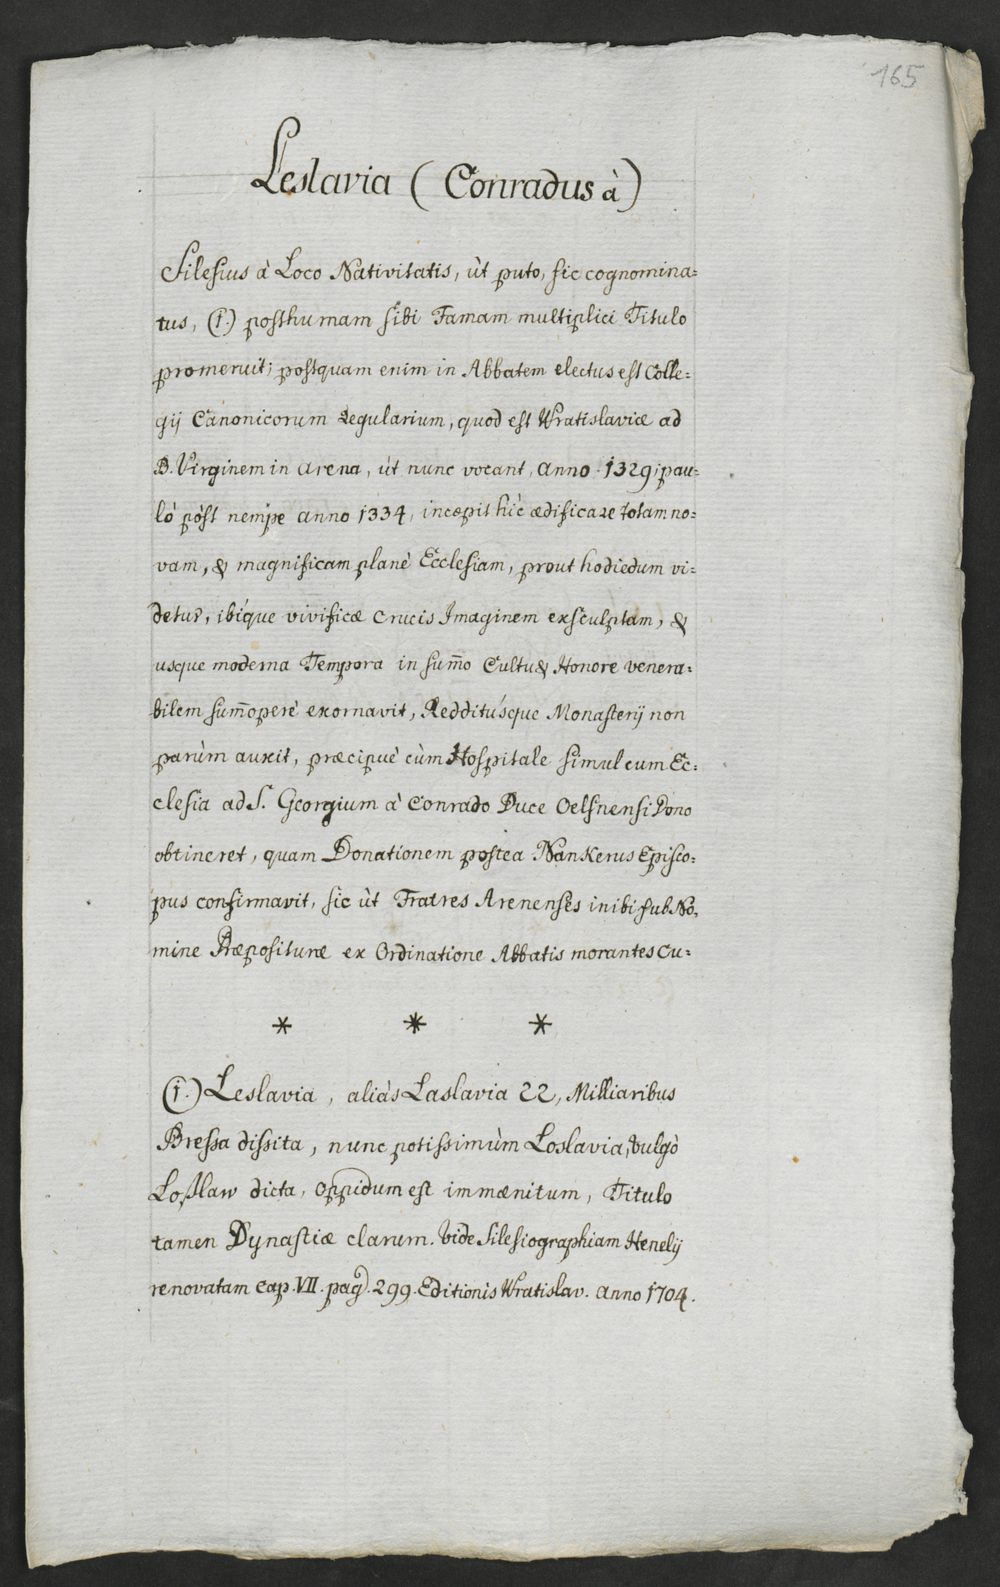 165
Leslavia (Conradus à)
Silesius à Loco Nativitatis, ùt puto, sic cognomina=
tus, (1.) posthumam sibi Famam multiplici Titulo
promeruit; postquam enim in Abbatem electus est Colle=
gij Canonicorum Regularium, quod est Wratislaviæ ad
B. Virginem in Arena, ùt nunc vocant, Anno 1329; pau=
lò pòst nempe anno 1334, incæpit hìc ædificare totam no=
vam, & magnificam planè Ecclesiam, prout hodiedum vi=
detur, ibíque vivificæ Crucis Imaginem exsculptam, &
usque moderna Tempora in sum̄o Cultu & Honore venera=
bilem sum̄operè exornavit, Redditúsque Monasterij non
parùm auxit, præcipuè cùm Hospitale simul cum Ec=
clesia ad S. Georgium à Conrado Duce Oelsnensi Dono
obtineret, quam Donationem postea Nankerus Episco=
pus confirmavit, sic ùt Fratres Arenenses inibi sub No=
mine Præpositure ex Ordinatione Abbatis morantes Cu=
* * *
(1.) Leslavia, aliàs Laslavia 22, Milliaribus
Bressa dissita, nunc potissimùm Loslavia, vulgò
Loßlaw dicta, Oppidum est immænitum, Titulo
tamen Dynastiæ clarum. Vide Silesiographiam Henelij
renovatam Cap. VII. pag. 299. Editionis Wratislav. Anno 1704.